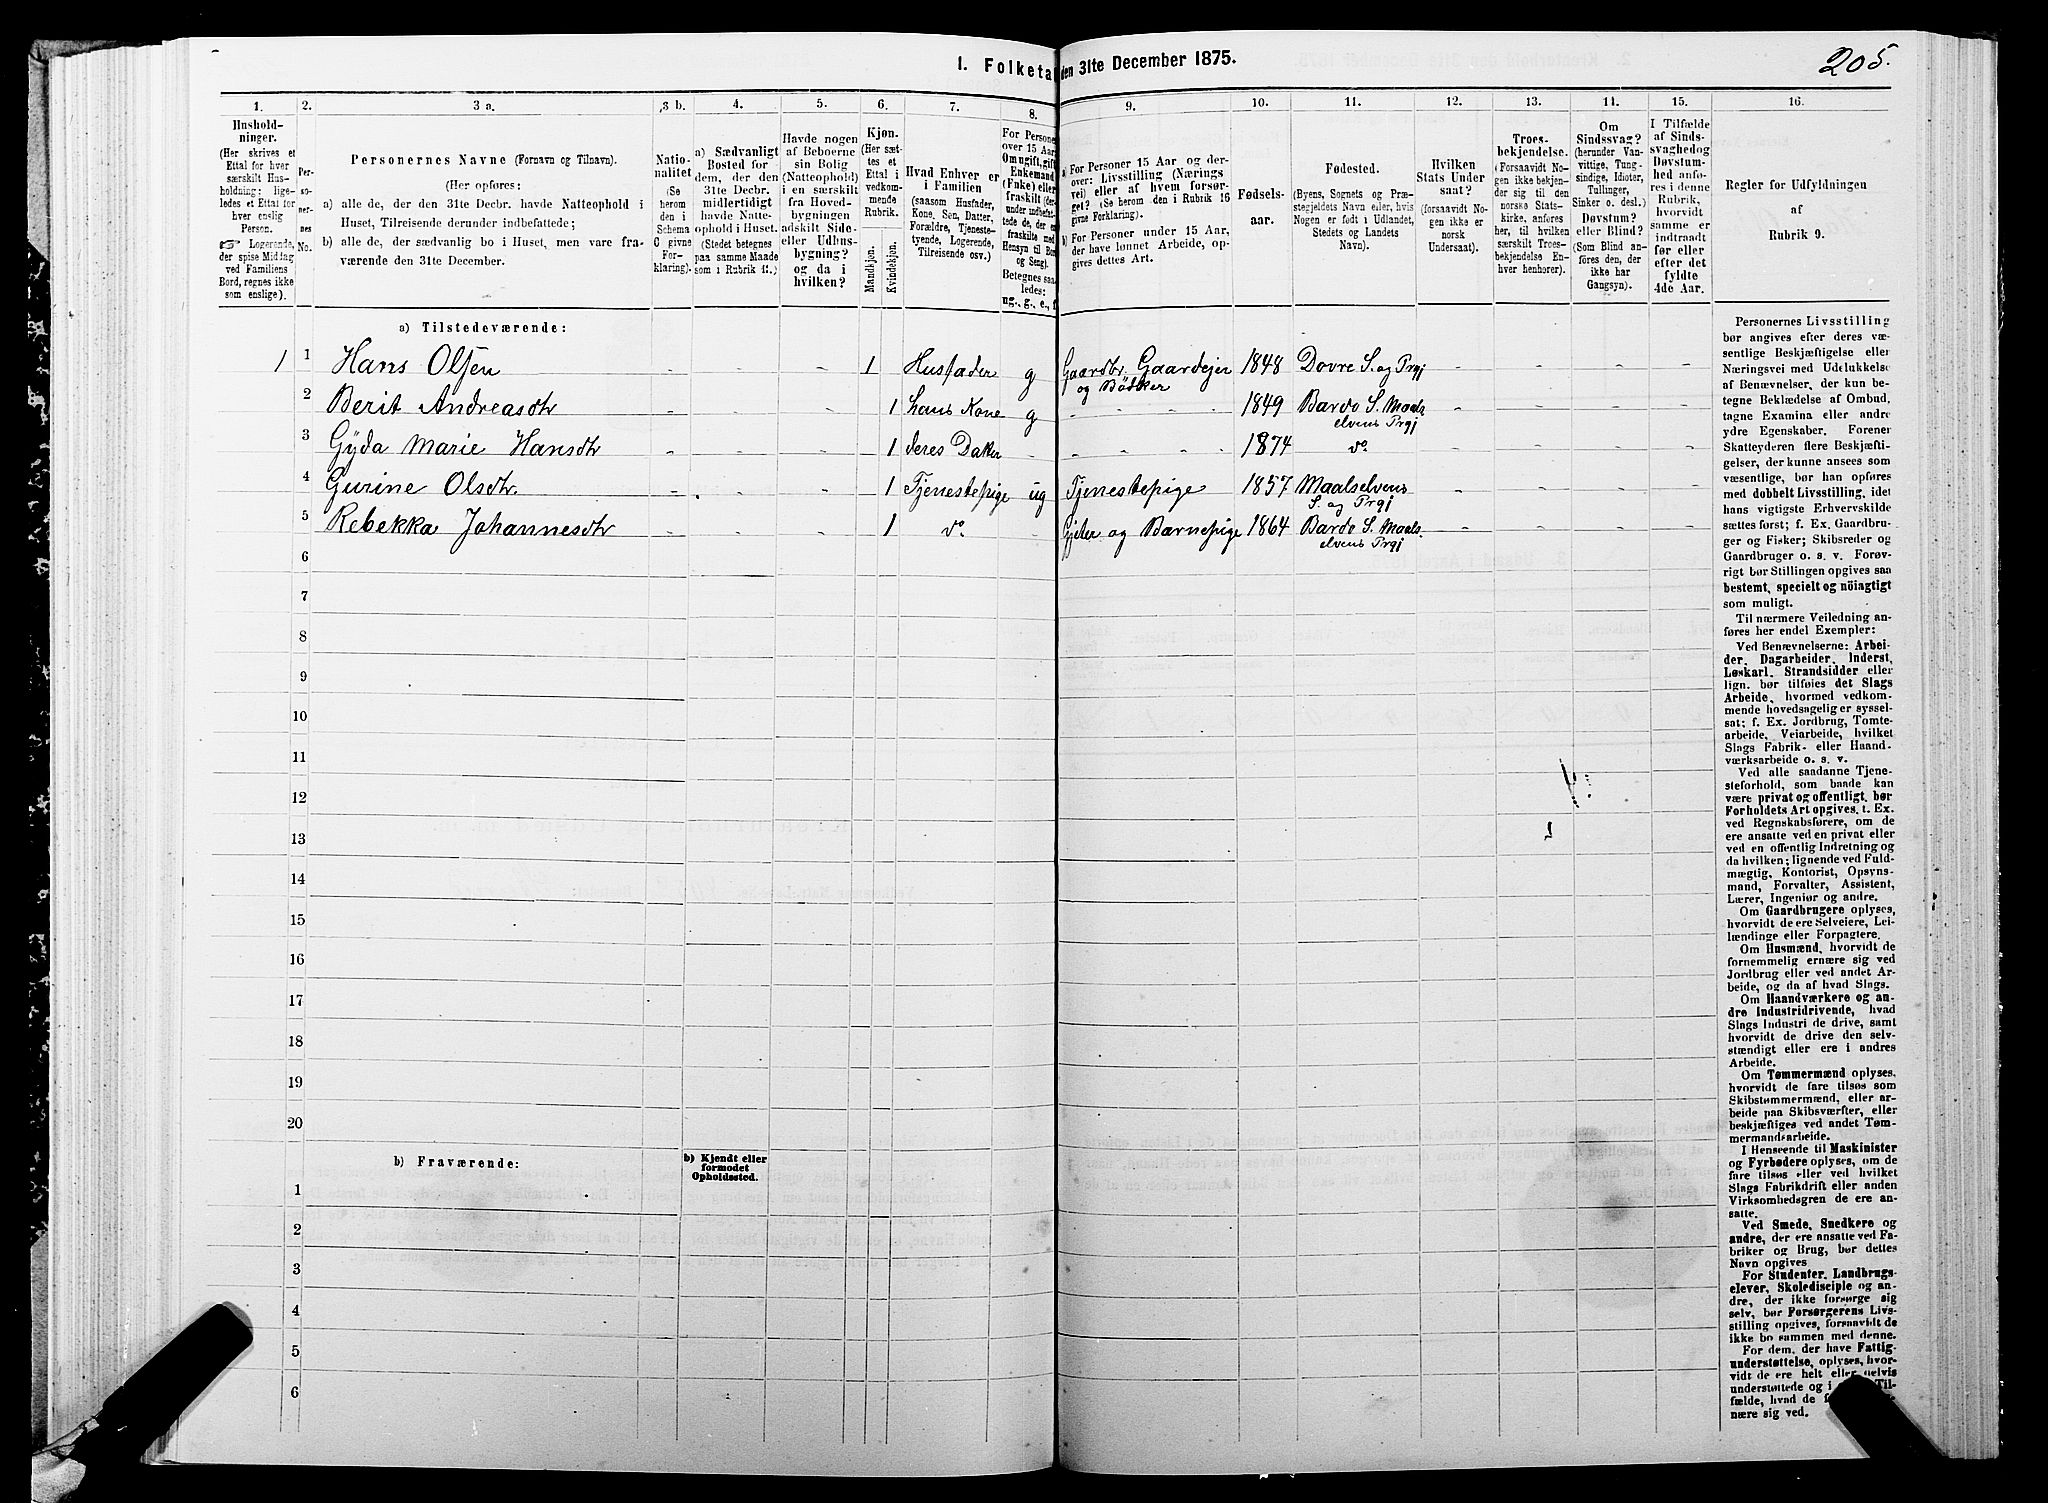 I. Folketa
den 31te December 1875.
205.
1.
2.
3 a.
3 b.
4.
5.
6.
7.
8.
9.
10.
11.
12.
13.
14.
15.
16.
Hushold-
ninger.
(Her skrives et
Ettal for hver
særskilt Hus-
holdning; lige-
ledes et Ettal for
hver enslig
Person.
☞ Logerende,
der spise Middag
ved Familiens
Bord, regnes ikke
som enslige).
Per-
so-
ner-
nes
No.
Personernes Navne (Fornavn og Tilnavn).
(Her opføres:
a) alle de, der den 31te Decbr. havde Natteophold i
Huset, Tilreisende derunder indbefattede;
b) alle de, der sædvanlig bo i Huset, men vare fra-
værende den 31te December.
Natio-
nalitet
(Se
herom
den i
Schema
C givne
For-
klaring).
a) Sædvanligt
Bosted for
dem, der den
31te Decbr.
midlertidigt
havde Natte-
ophold i Huset.
(Stedet betegnes
paa samme Maade
som i Rubrik 11.)
Havde nogen
af Beboerne
sin Bolig
(Natteophold)
i en særskilt
fra Hoved-
bygningen
adskilt Side-
eller Udhus-
bygning?
og da i
hvilken?
Kjøn.
(Her sæt-
tes et
Ettal i
vedkom-
mende
Rubrik.
Mandkjøn.
Kvindekjøn.
Hvad Enhver er
i Familien
(saasom Husfader,
Kone, Søn, Datter,
Forældre, Tjeneste-
tyende, Logerende,
Tilreisende osv.)
For Persone
over 15 Aar
Om ugift, gift
Enkemand
(Enke) eller
fraskilt (der-
under indbefat-
tede de, der er
fraskilte med
Hensyn til Bor
og Seng).
Betegnes saa
ledes:
ug., g., e., f.
a) For Personer 15 Aar og der-
over: Livsstilling (Nærings
vei) eller af hvem forsør-
get? (Se herom den i Rubrik 16
givne Forklaring.)
b) For Personer under 15 Aar,
der have lønnet Arbeide, op-
gives dettes Art.
Fødsels-
aar.
Fødested.
(Byens, Sognets og Præ-
stegjeldets Navn eller, hvis
Nogen er født i Udlandet,
Stedets og Landets
Navn).
Hvilken
Stats Under
saat?
(forsaavidt No-
gen ikke er
norsk
Undersaat).
Troes-
bekjendelse.
(Forsaavidt No-
gen ikke bekjen-
der sig til den
norske Stats-
kirke, anføres
her, til hvilken
særskilt Troes-
bekjendelse En-
hver henhører).
Om
Sindssvag?
(herunder Van-
vittige, Tung-
sindige, Idioter,
Tullinger,
Sinker o. desl.)
Døvstum?
eller Blind?
(Som Blind an-
føres den, der
ikke har
Gangsyn).
I Tilfælde
af Sinds-
svaghed og
Døvstum-
hed anfø-
res i denne
Rubrik,
hvorvidt
samme er
indtraadt
før eller
efter det
fyldte
4de Aar.
Regler for Udfyldningen
af
Rubrik 9.
a) Tilstedeværende:
1 1 Hans Olsen 1 Husfader g Gaardbr. Gaardejer 1848 Dovre S. og Prgj
og Bödker
2 Berit Andreasdtr 1 hans Kone g 1849 Bardo S. Maals
elvens Prgj
3 Gÿda Marie Hansdtr 1 deres Datter 1874 do
4 Gurine Olsdtr. 1 Tjenestepige ug Tjenestepige 1857 Maalselvens
S. og Prgj
5 Rebekka Johannesdtr 1 do Gjeter og Barnepige 1864 Bardo S. Maals.
elvens Prgj
6
7
8
9
10
11
12
13
14
15
16
17
18
19
20
b) Fraværende:
b) Kjendt eller
formodet
Opholdssted.
1
2
3
4
5
6
Personernes Livsstilling
bør angives efter deres væ-
sentlige Beskjæftigelse eller
Næringsvei med Udelukkelse
af Benævnelser, der kun be-
tegne Beklædelse af Ombud,
tagne Examina eller andre
ydre Egenskaber. Forener
Skatteyderen flere Beskjæfti-
gelser, der kunne ansees som
væsentlige, bør han opføres
med dobbelt Livsstilling, idet
hans vigtigste Erhvervskilde
sættes først; f. Ex. Gaardbru-
ger og Fisker; Skibsreder og
Gaardbruger o. s. v. Forøv-
rigt bør Stillingen opgives saa
bestemt, specielt og nöiagtigt
som muligt.
Til nærmere Veiledning an-
føres her endel Exempler:
Ved Benævnelserne: Arbei-
der, Dagarbeider, Inderst,
Løskarl, Strandsidder eller
lign. bør tilføies det Slags
Arbeide, hvormed vedkom-
mende hovedsagelig er syssel-
sat; f. Ex. Jordbrug, Tomte-
arbeide, Veiarbeide, hvilket
Slags Fabrik- eller Haand-
værksarbeide o. s. v.
Ved alle saadanne Tjene-
steforhold, som baade kan
være privat og offentligt, bør
Forholdets Art opgives, t. Ex.
ved Regnskabsførere, om de
ere ansatte ved en privat eller
ved en offentlig Indretning og
da hvilken; lignende ved Fuld-
mægtig, Kontorist, Opsyns-
mand, Forvalter, Assistent,
Lærer, Ingeniør og andre.
Om Gaardbrugere oplyses,
hvorvidt de ere Selveiere, Lei-
lændinge eller Forpagtere.
Om Husmænd, hvorvidt de
fornemmelig ernære sig ved
Jordbrug eller ved andet Ar-
beide, og da af hvad Slags.
Om Haandværkere og an-
dre Industridrivende, hvad
Slags Industri de drive, samt
hvorvidt de drive den selv-
stændigt eller ere i andres
Arbeide.
Om Tømmermænd oplyses,
hvorvidt de fare tilsøs som
Skibstømmermænd, eller ar-
beide paa Skibsværfter, eller
beskjæftiges ved andet Tøm-
mermandsarbeide.
I Henseende til Maskinister
og Fyrbødere oplyses, om de
fare tilsøs eller ved hvilket
Slags Fabrikdrift eller anden
Virksomhedsgren de ere an-
satte.
Ved Smede, Snedkere og
andre, der ere ansatte ved Fa-
briker og Brug, bør dettes
Navn opgives
For Studenter, Landbrugs-
elever, Skoledisciple og an-
dre, der ikke forsørge sig
selv, bør Forsørgerens Livs-
stilling opgives, forsaavidt de
ikke bo sammen med denne.
For dem, der have Fattig-
understøttelse, oplyses, hvor-
vidt de ere helt eller delvis
understøttede og i Til-
fælde, hvad de
nære sig ved.